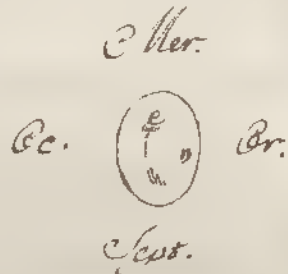 Mer.
Oc. Or.
Sept.